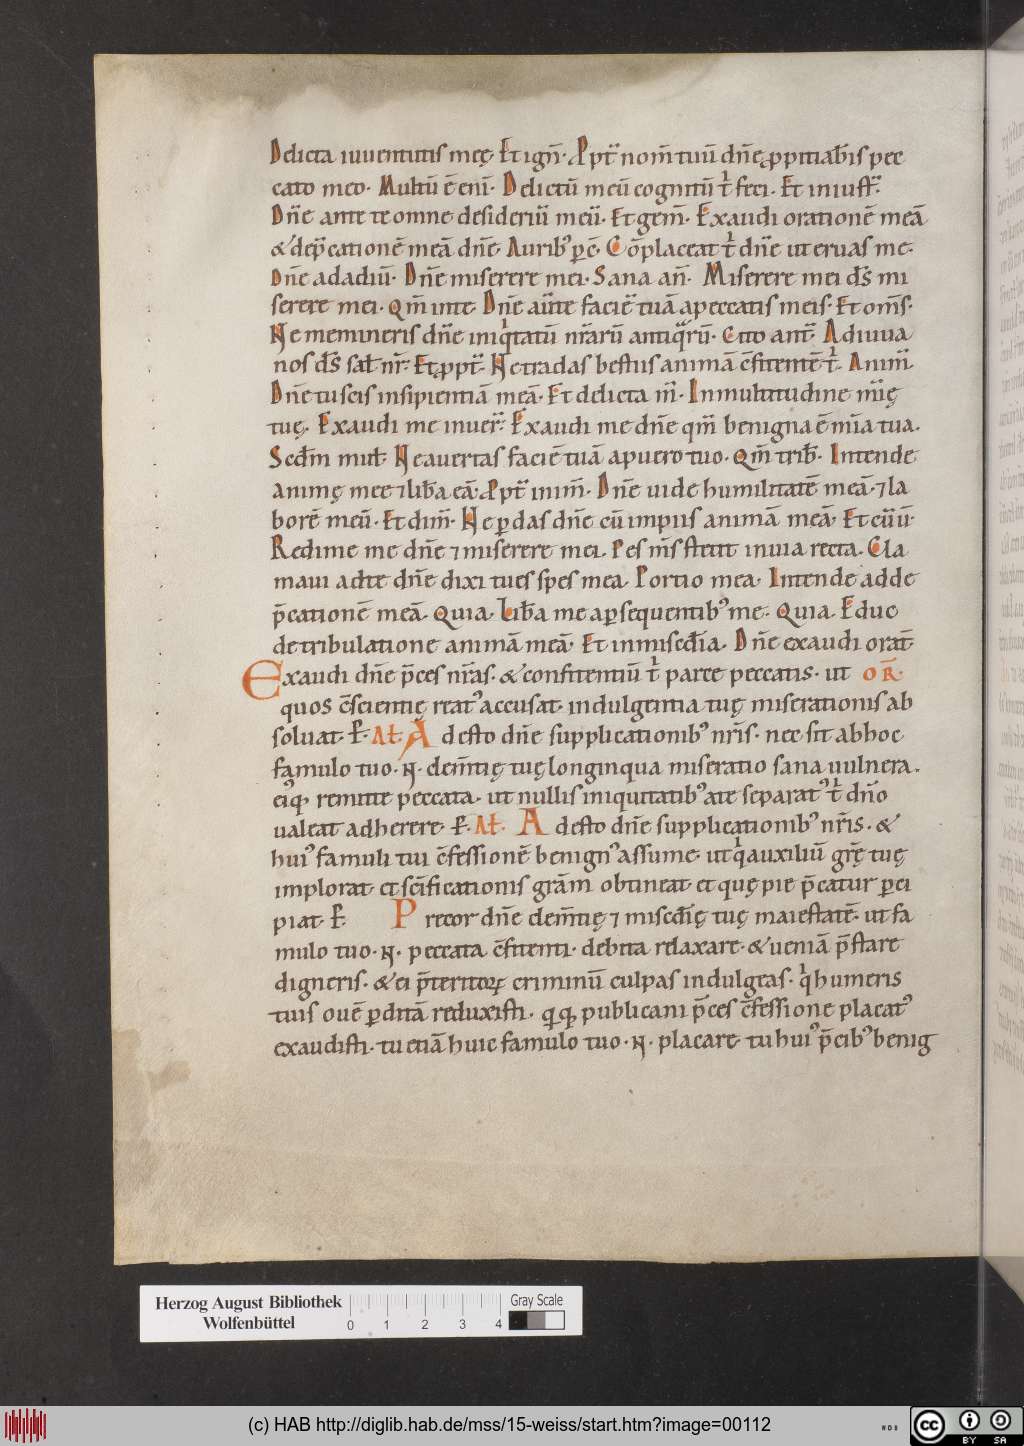 Delicta iuuentutis meę. Et ign̄. Ꝓpt̄ nom̄ tuū dn̄e ꝓpitiab̄is pec
cato meo. Multū ē enī. Delictū meū cognitū t͛ feci. Et iniust̄.
Dn̄e ante te omne desideriū meū. Et gem̄. Exaudi orationē meā
& dep̄cationē meā dn̄e. Aurib; ꝑc̄. Cōplaceat t͛ dn̄e ut eruas me.
Dn̄e ad adiū. Dn̄e miserere mei. Sana an̄. Miserere mei d̄s mi
serere mei. Qm̄ in te. Dn̄e au̅te faciē tuā a peccatis meis. Et om̄s.
Ne memineris dn̄e iniq͛tatū nr̄arū antiq̄rū. Cito ant̄. Adiuua
nos d̄s sal̄ nr̄. Et ꝓpt̄. Ne tradas bestiis animā c̄fitentē t͛. Anim̄
Dn̄e tu scis insipientiā meā. Et delicta m̄. In multitudine m̄ię
tuę. Exaudi me in uer̄. Exaudi me dn̄e qm̄ benigna ē m̄ia tua.
Scd̄m mul̄t. Ne auertas faciē tuā a puero tuo. Qm̄ trib̄. Intende
animę mee ⁊ lib̄a eā. Ꝓpt̄ inim̄. Dn̄e uide humilitatē meā. ⁊ la
borē meū. Et dim̄. Ne ꝑdas dn̄e cū impiis animā meā. Et cū ū.
Redime me dn̄e ⁊ miserere mei. Pes m̄s stetit in uia recta. Cla
maui ad te dn̄e dixi tu es spes mea. Portio mea. Intende ad de
p̄cationē meā. Quia. Lib̄a me a ꝑsequentib; me. Quia. Educ
de tribulatione animā meā. Et in miscd̄ia. Dn̄e exaudi orat̄
Exaudi dn̄e p̄ces nr̄as. & confitentiū t͛ parce peccatis. ut OR̄.
quos c̄scientię reat᾽ accusat. indulgentia tuę miserationis ab
soluat. P̄. Al̄. Adesto dn̄e supplicationib; nr̄is. nec sit ab hoc
famulo tuo. N. clem̄tię tuę longinqua miseratio sana uulnera.
ei᾽q; remitte peccata. ut nullis iniquitatib; a te separat᾽ t͛ dn̄o
ualeat adherere. P̄. Al̄. Adesto dn̄e supplicationib; nr̄is. &
hui᾽ famuli tui c̄fessionē benign᾽ assume. ut q͛ auxiliū gr̄ę tuę
implorat. et sc̄ificationis grām obtineat et quę pie p̄catur ꝑci
piat. P̄. Precor dn̄e clem̄tię ⁊ miscd̄ię tuę maiestatē. ut fa
mulo tuo. N. peccata c̄fitenti. debita relaxare. & ueniā p̄stare
digneris. & ei p̄teritoꝝ criminū culpas indulgeas. q͛ humeris
tuis ouē ꝑditā reduxisti. q͛q; publicani p̄ces c̄fessione placat᾽
exaudisti. tu etiā huic famulo tuo. N. placare. tu hui᾽ p̄cib; benig
Herzog August Bibliothek
Wolfenbüttel
0 1 2 3 4
Gray Scale
(c) HAB http://diglib.hab.de/mss/15-weiss/start.htm?image=00112
WDB
cc BY SA